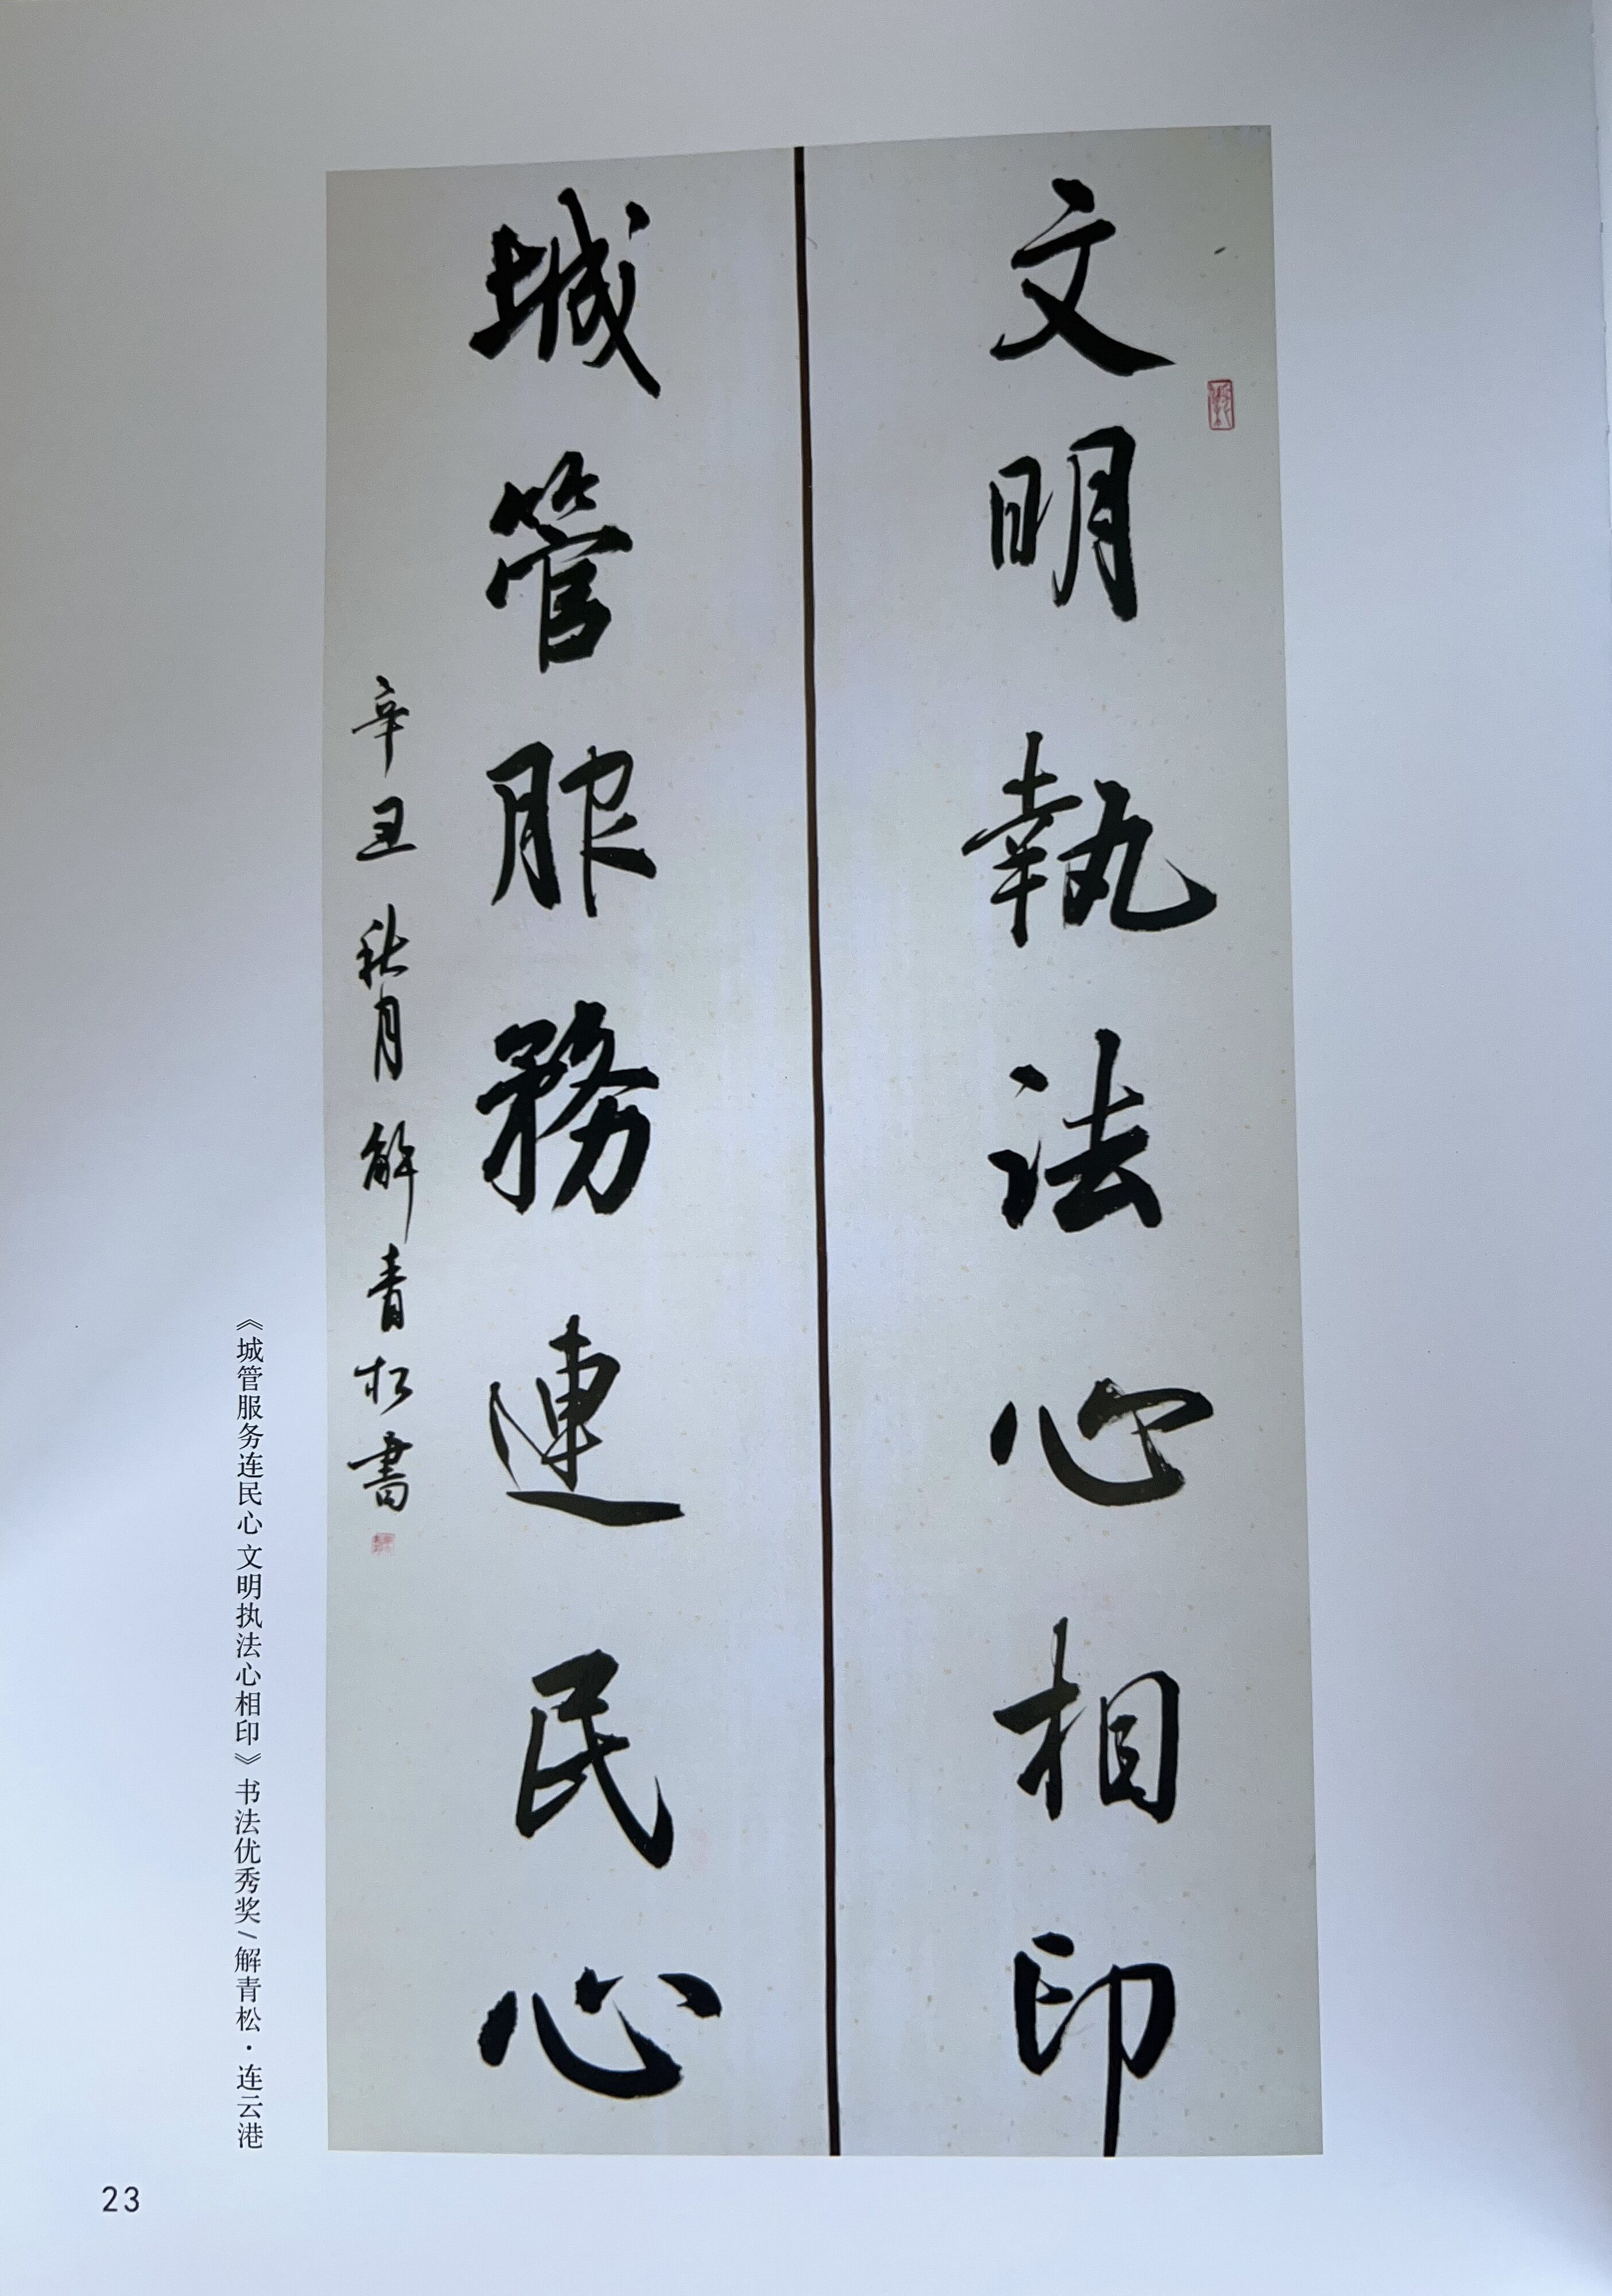 文明執法心相印
城管服務連民心
辛丑秋月解青松書
《城管服务连民心 文明执法心相印》书法优秀奖/解青松·连云港
23